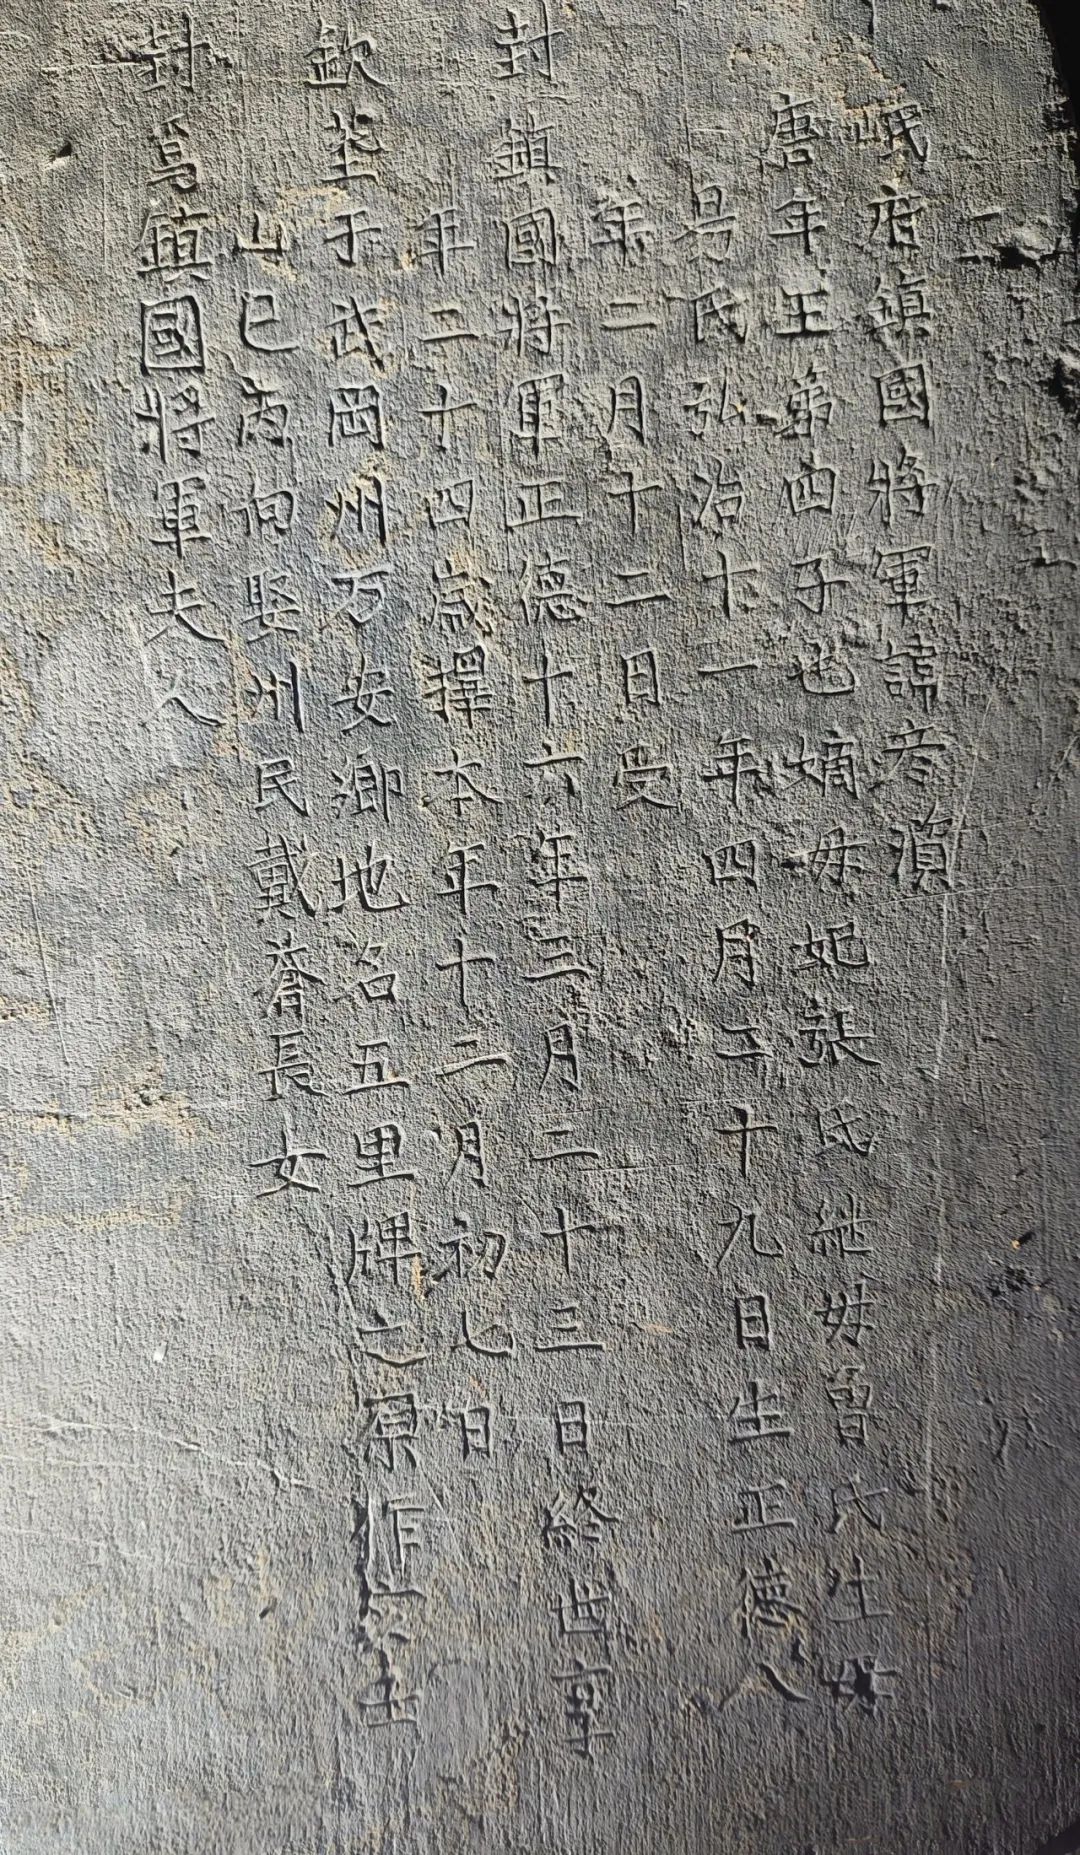 岷府鎮國將軍諱彦濵
唐年王第四子也嫡母妃張氏継母曾氏生母
易氏弘治十一年四月二十九日生正德八
年二月十二日受
封鎮國將軍正德十六年三月二十三日終世享
年二十四歲擇本年十二月初七日
欽塟于武岡州万安鄉地名五里牌之原作亥
山巳丙向娶州民戴長女
封爲鎮國將軍夫人